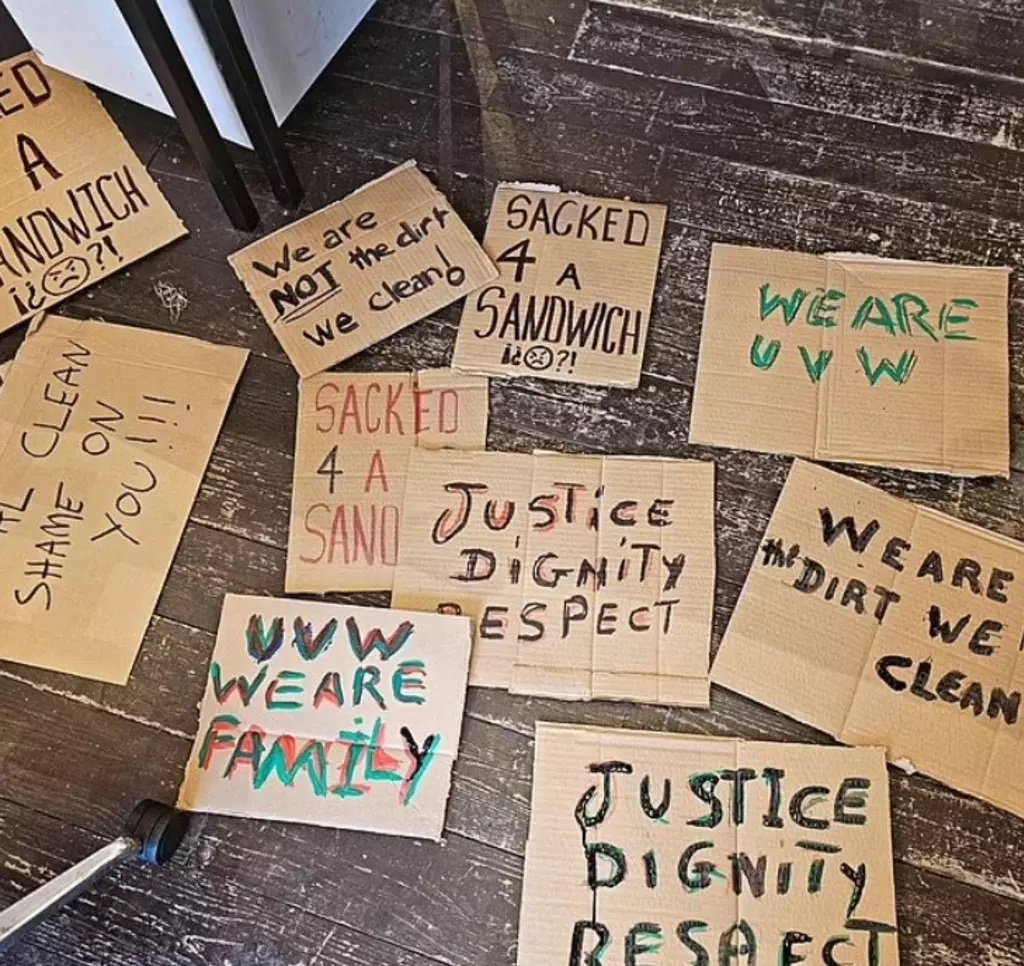 ED
A
ANDWICH
¡¿☹?!
We are
NOT the dirt
we clean!
SACKED
4 A
SANDWICH
¡¿☹?!
WE ARE
UVW
AL CLEAN
SHAME ON
YOU!!!
SACKED
4 A
SAND
JUSTICE
DiGNiTY
RESPECT
WE ARE
the DIRT WE
CLEAN
UVW
WE ARE
FAMiLY
JUSTICE
DIGNiTY
RESPECT